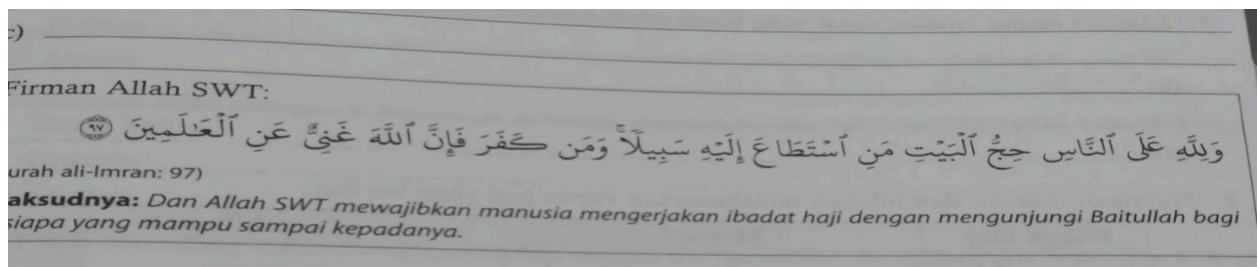 c)
Firman Allah SWT:
وَلِلَّهِ عَلَى ٱلنَّاسِ حِجُّ ٱلْبَيْتِ مَنِ ٱسْتَطَاعَ إِلَيْهِ سَبِيلًا ۚ وَمَن كَفَرَ فَإِنَّ ٱللَّهَ غَنِىٌّ عَنِ ٱلْعَـٰلَمِينَ ٩٧
urah ali-Imran: 97)
aksudnya: Dan Allah SWT mewajibkan manusia mengerjakan ibadat haji dengan mengunjungi Baitullah bagi
siapa yang mampu sampai kepadanya.